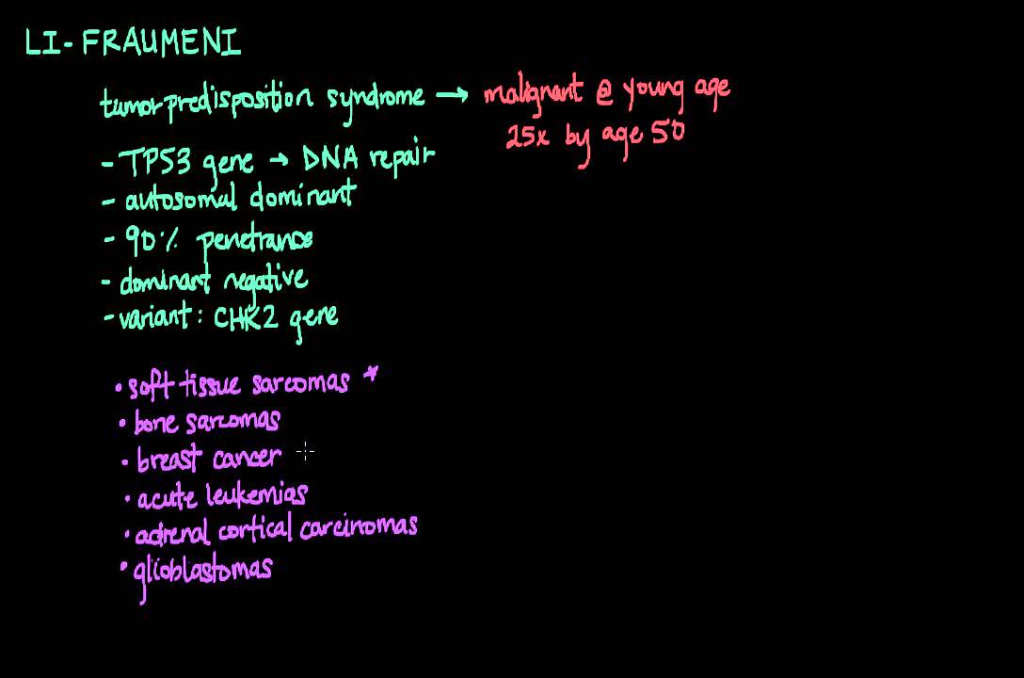 LI-FRAUMENI
tumor predisposition syndrome → malignant @ young age
25x by age 50
- TP53 gene → DNA repair
- autosomal dominant
- 90% penetrance
- dominant negative
- variant: CHK2 gene
• soft tissue sarcomas *
• bone sarcomas
• breast cancer
• acute leukemias
• adrenal cortical carcinomas
• glioblastomas